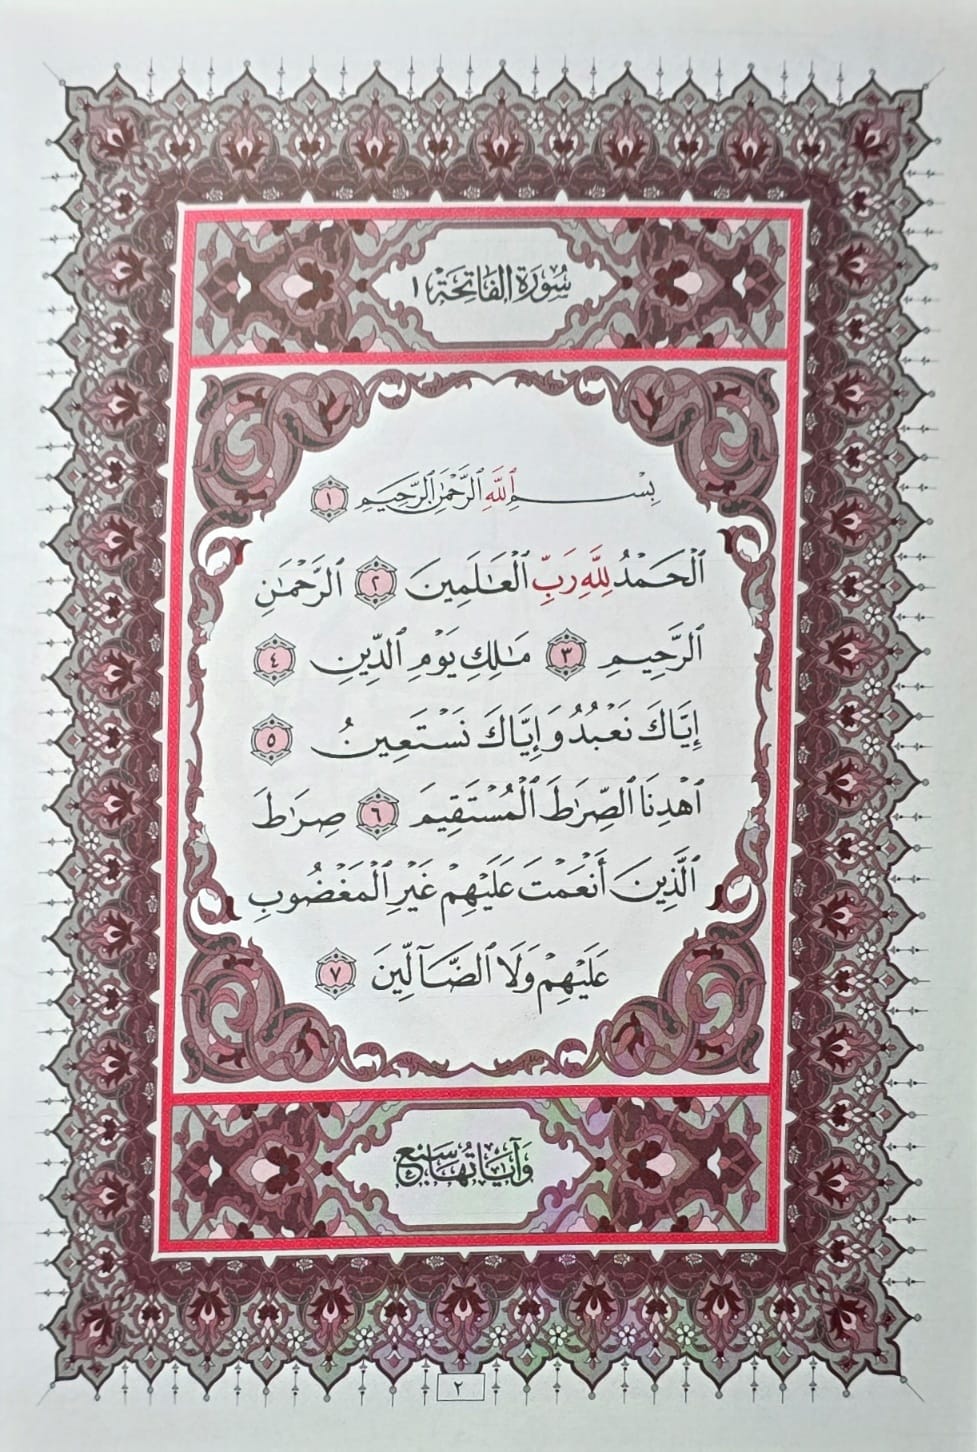 سُورَةُ الفَاتِحَةِ ١
بِسْمِ ٱللَّهِ ٱلرَّحْمَٰنِ ٱلرَّحِيمِ ١
ٱلْحَمْدُ لِلَّهِ رَبِّ ٱلْعَٰلَمِينَ ٢ ٱلرَّحْمَٰنِ
ٱلرَّحِيمِ ٣ مَٰلِكِ يَوْمِ ٱلدِّينِ ٤
إِيَّاكَ نَعْبُدُ وَإِيَّاكَ نَسْتَعِينُ ٥
ٱهْدِنَا ٱلصِّرَٰطَ ٱلْمُسْتَقِيمَ ٦ صِرَٰطَ
ٱلَّذِينَ أَنْعَمْتَ عَلَيْهِمْ غَيْرِ ٱلْمَغْضُوبِ
عَلَيْهِمْ وَلَا ٱلضَّآلِّينَ ٧
وَآيَاتُهَا سَبْعٌ
٢